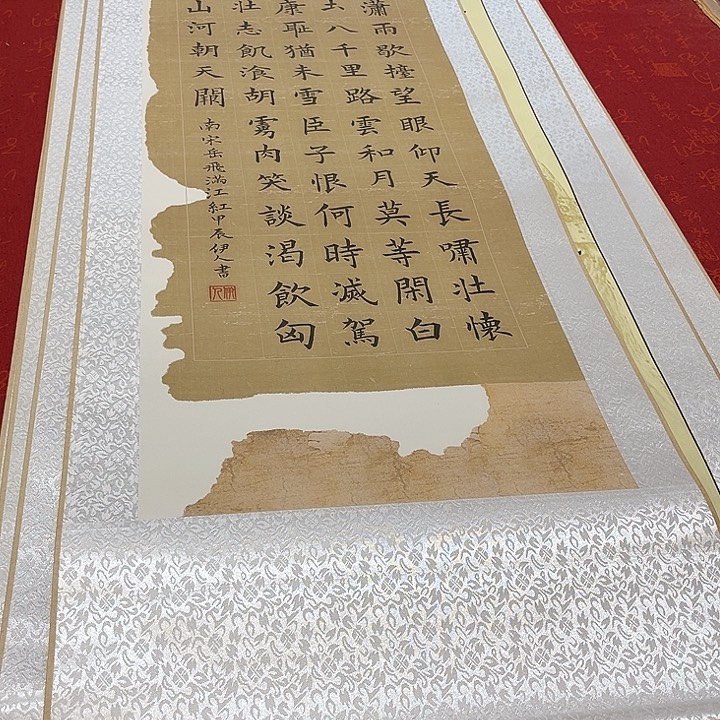 瀟雨歇擡望眼仰天長嘯壯懷
土八千里路雲和月莫等閑白
康耻猶未雪臣子恨何時滅駕
壯志飢湌胡虜肉笑談渴飲匈
山河朝天闕
南宋岳飛滿江紅甲辰伊人書